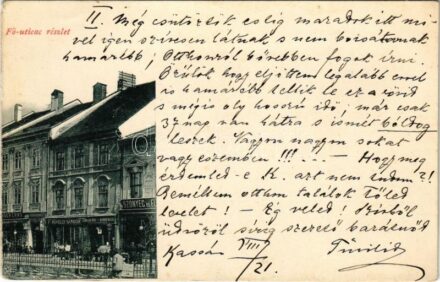 Fő-utcza részlet
II. Még csütörtök estig maradok itt mi-
vel igen szivesen látnak s nem bocsátanak
hamarébb; Otthonról bővebben fogok irni.
Örülök hogy eljöttem legalább evvel
is hamarébb telik le ez a rövid
s mégis oly hosszú idő, már csak
37 nap van hátra s ismét boldog
leszek. Vagyon nagyon sokat
vagy eszemben!!! — — Hogy meg
érdemled-e K. azt nem tudom?!
Remélem otthon találok Tőled
levelet! — Ég veled! Szivből
üdvözöl sirig szerető barátnőd
Kassa VIII/21.